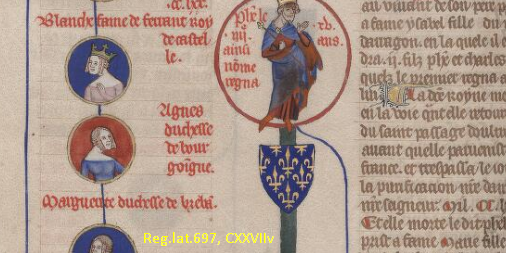 Blanche fame de ferrant roy
de castel
le.
Agnes
duchesse
de bour
goigne.
Marguerite duchesse de
phe le
ainsi
nome
regna
ans.
au vivant de son pere
a fame ysabel fille du
darragon. en la quele il
dra .ij. filz phe et charles
quelz le premier regna a
lui La dce royne
en la voie qnt elle
du saint passage
avant quelle
france. et trespassa le
la purification nre
nre saigneur .Mil. CC.
Et elle morte le dit
prist a fame Marie fille
Reg.lat.697, CXXVIIv